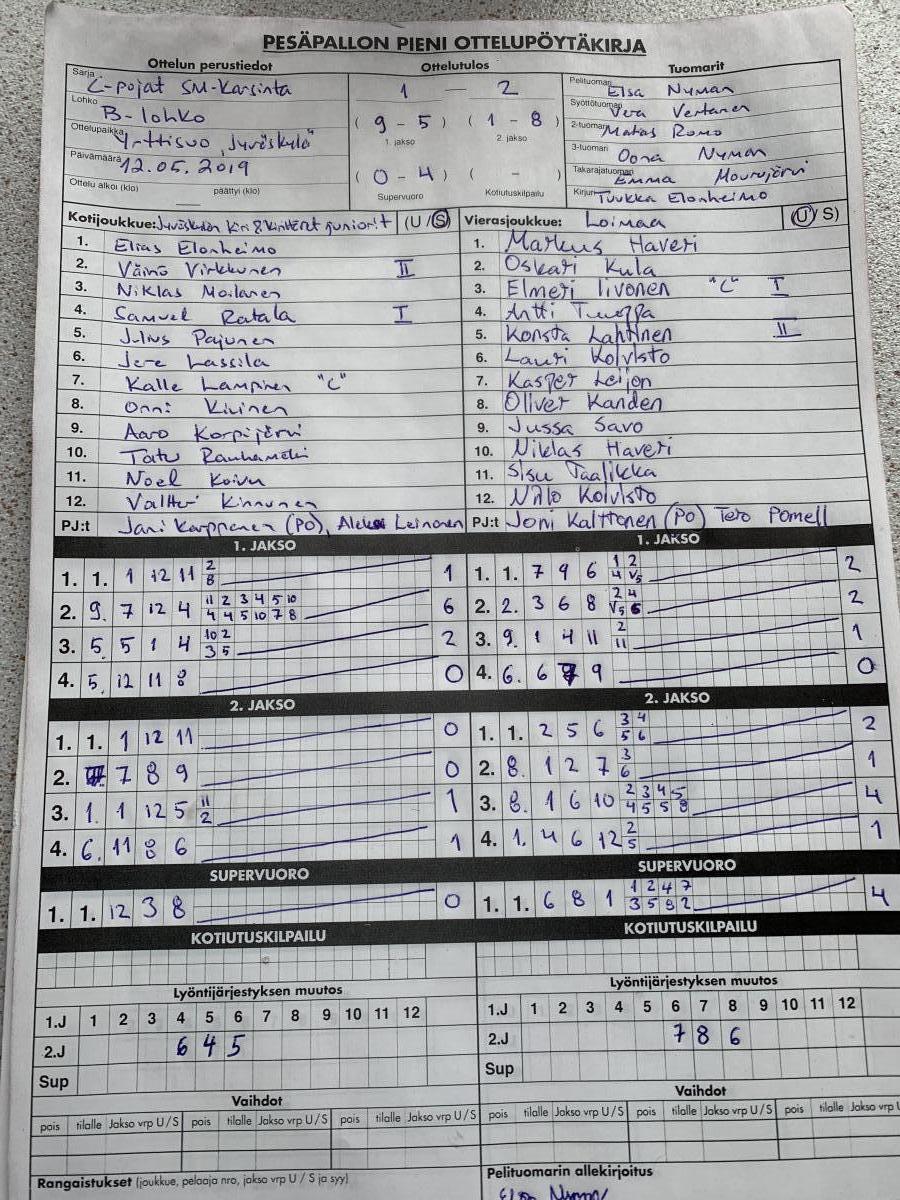 PESÄPALLON PIENI OTTELUPÖYTÄKIRJA
Ottelun perustiedot Ottelutulos Tuomarit
Sarja C-pojat SM-Karsinta
Lohko B-lohko
Ottelupaikka Yrttisuo, Jyväskylä
Päivämäärä 12.05.2019
Ottelu alkoi (klo) päättyi (klo)
1 — 2
( 9 - 5 ) ( 1 - 8 )
1. jakso 2. jakso
( 0 - 4 ) ( - )
Supervuoro Kotiutuskilpailu
Pelituomari Elsa Nyman
Syöttötuomari Vera Vertanen
2-tuomari Matas Romo
3-tuomari Oona Nyman
Takarajatuomari Emma Mourujärvi
Kirjuri Tuukka Elonheimo
Kotijoukkue: Jyväskylän Kiri juniorit (U/S)
1. Elias Elonheimo
2. Väinö Virkkunen II
3. Niklas Moilanen
4. Samuel Ratala I
5. Julius Pajunen
6. Jere Lassila
7. Kalle Lampinen "C"
8. Onni Kivinen
9. Aaro Korpijärvi
10. Tatu Rauhamäki
11. Noel Koivu
12. Valtteri Kinnunen
PJ:t Jani Karppanen (PO), Aleksi Leinonen
Vierasjoukkue: Loimaa (U/S)
1. Markus Haveri
2. Oskari Kula
3. Elmeri Iivonen "C" I
4. Antti Tuoppa
5. Konsta Lahtinen II
6. Lauri Koivisto
7. Kasper Leijon
8. Oliver Kanden
9. Jussa Savo
10. Niklas Haveri
11. Sisu Taalikka
12. Niilo Koivisto
PJ:t Joni Kalttonen (PO) Tero Pomell
1. JAKSO
1. 1. 1 12 11 2 1
8
2. 9. 7 12 4 11 2 3 4 5 10 6
4 4 5 10 7 8
3. 5. 5 1 4 10 2 2
3 5
4. 5. 12 11 8 0
1. JAKSO
1. 1. 7 9 6 1 2 2
4 V5
2. 2. 3 6 8 2 4 2
V5 6
3. 9. 1 4 11 2 1
11
4. 6. 6 9 0
2. JAKSO
1. 1. 1 12 11 0
2. 7 8 9 0
3. 1. 1 12 5 11 1
2
4. 6. 11 8 6 1
2. JAKSO
1. 1. 2 5 6 3 4 2
5 6
2. 8. 1 2 7 3 1
6
3. 8. 1 6 10 2 3 4 5 4
4 5 5 8
4. 1. 4 6 12 2 1
5
SUPERVUORO
1. 1. 12 3 8 0
SUPERVUORO
1. 1. 6 8 1 1 2 4 7 4
3 5 9 2
KOTIUTUSKILPAILU
KOTIUTUSKILPAILU
Lyöntijärjestyksen muutos
1.J 1 2 3 4 5 6 7 8 9 10 11 12
2.J 6 4 5
Sup
Lyöntijärjestyksen muutos
1.J 1 2 3 4 5 6 7 8 9 10 11 12
2.J 7 8 6
Sup
Vaihdot
pois tilalle Jakso vrp U/S pois tilalle Jakso vrp U/S pois tilalle Jakso vrp U/S
Vaihdot
pois tilalle Jakso vrp U/S pois tilalle Jakso vrp U/S pois tilalle Jakso vrp U
Rangaistukset (joukkue, pelaaja nro, jakso vrp U / S ja syy)
Pelituomarin allekirjoitus
Elsa Nyman